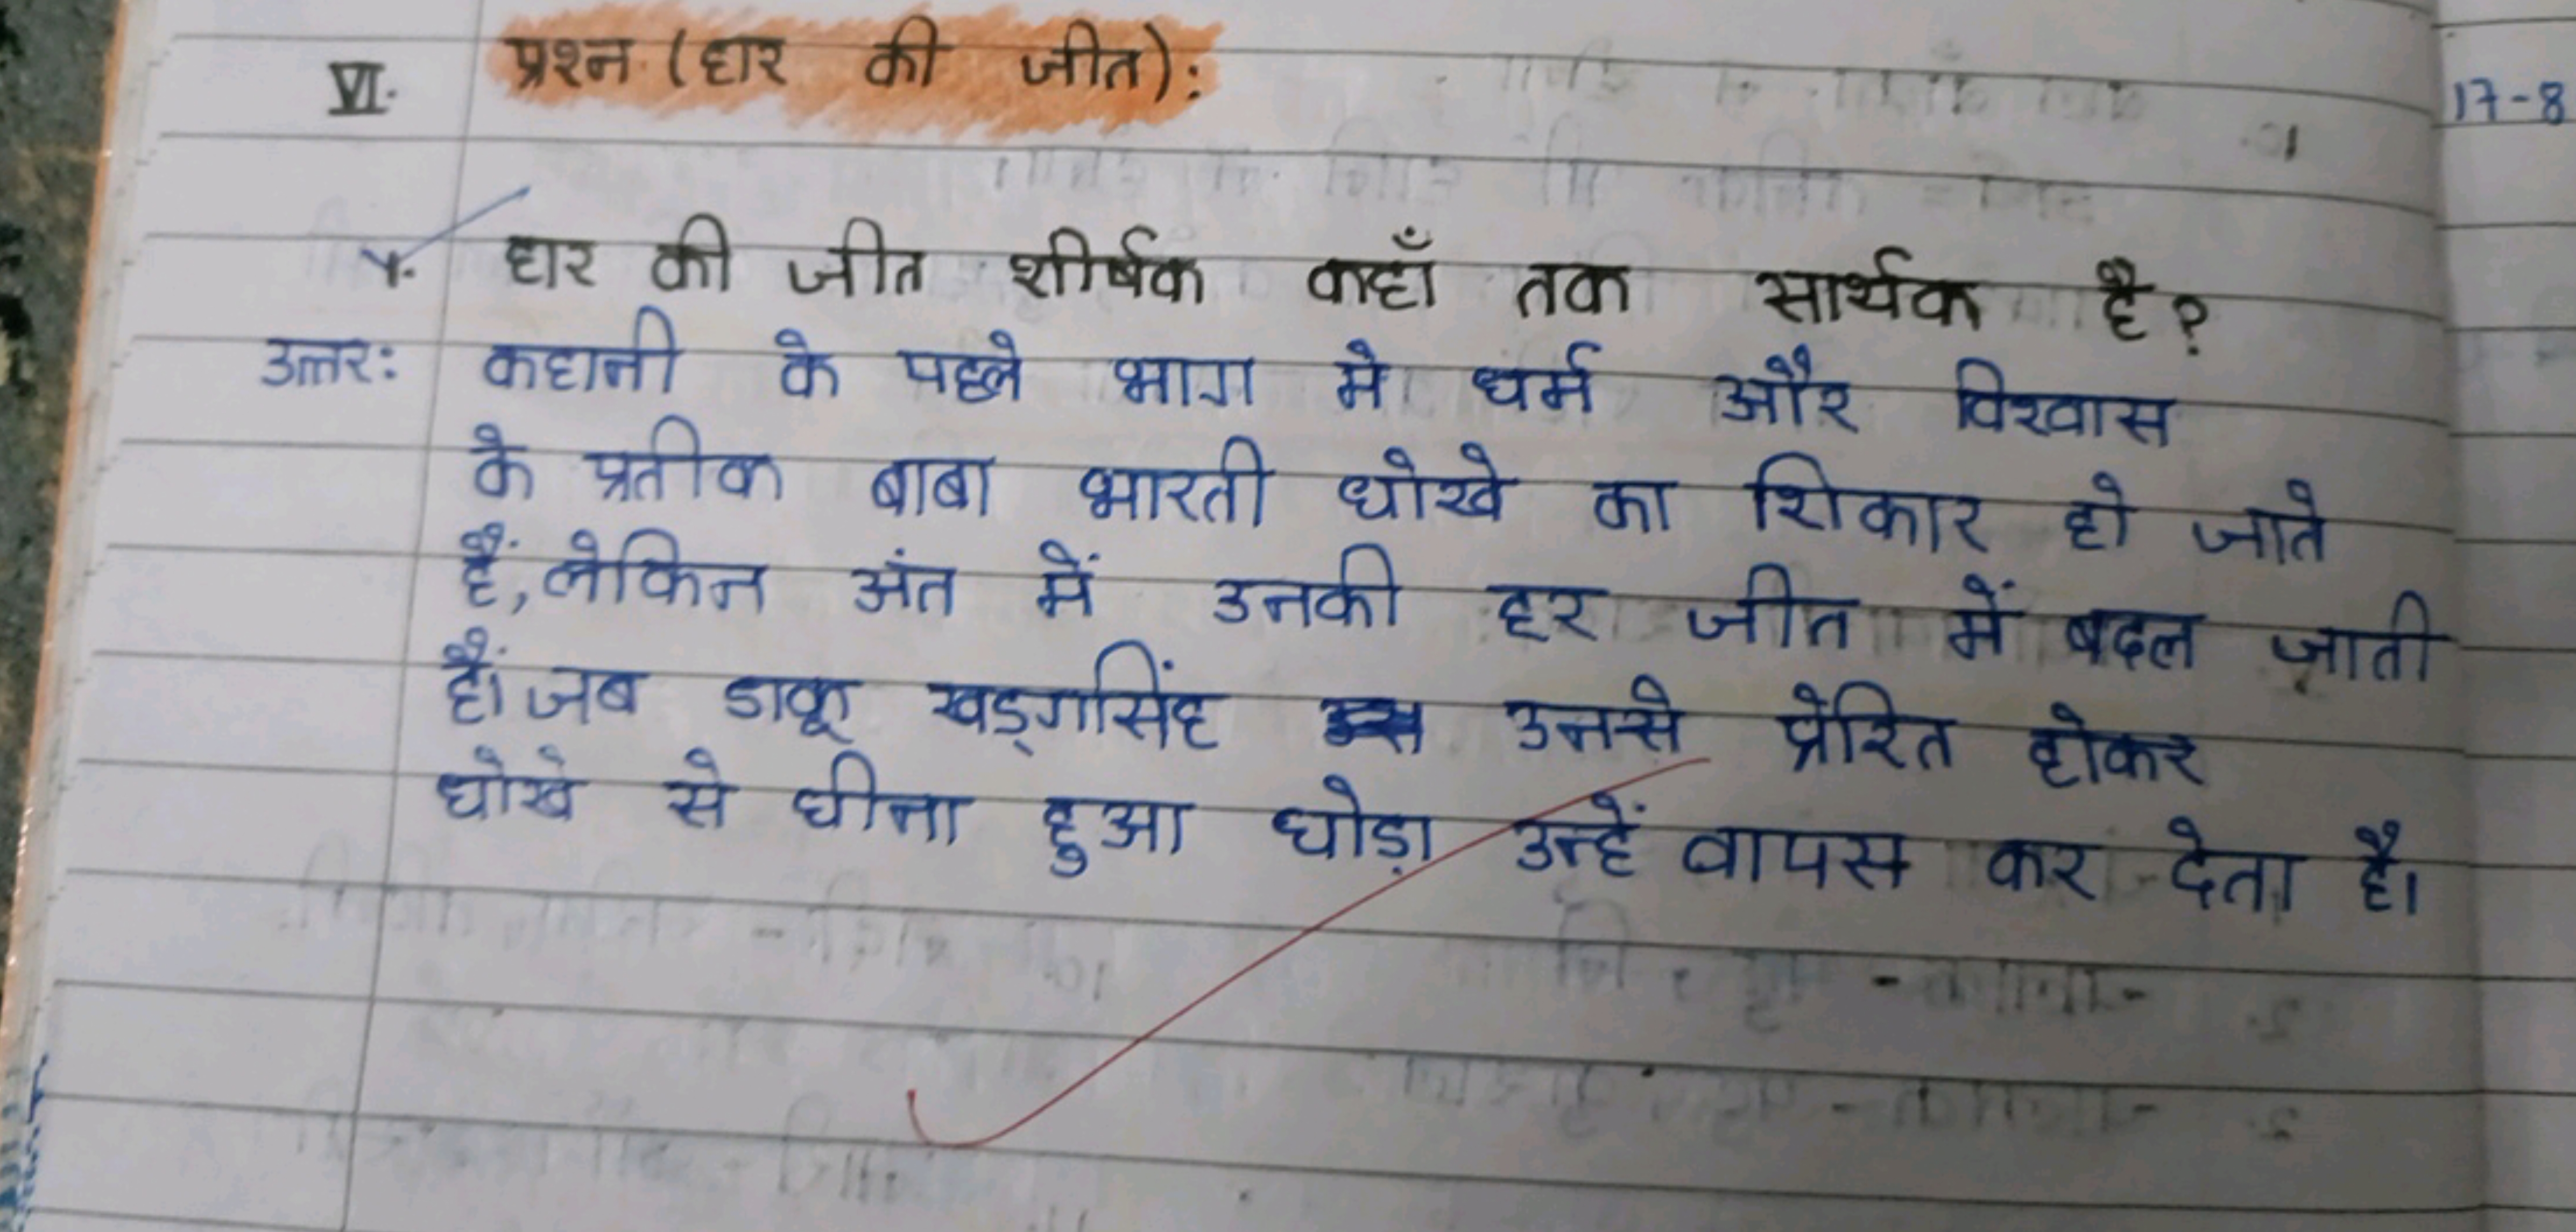 VI. प्रश्न (हार की जीत):
17-8
1. हार की जीत शीर्षक कहाँ तक सार्थक है?
उत्तर: कहानी के पहले भाग मे धर्म और विश्वास
के प्रतीक बाबा भारती धोखे का शिकार हो जाते
हैं, लेकिन अंत में उनकी हर जीत में बदल जाती
हैं। जब डाकू खड्गसिंह उनसे प्रेरित होकर
घोखे से छीना हुआ घोड़ा उन्हें वापस कर देता है।